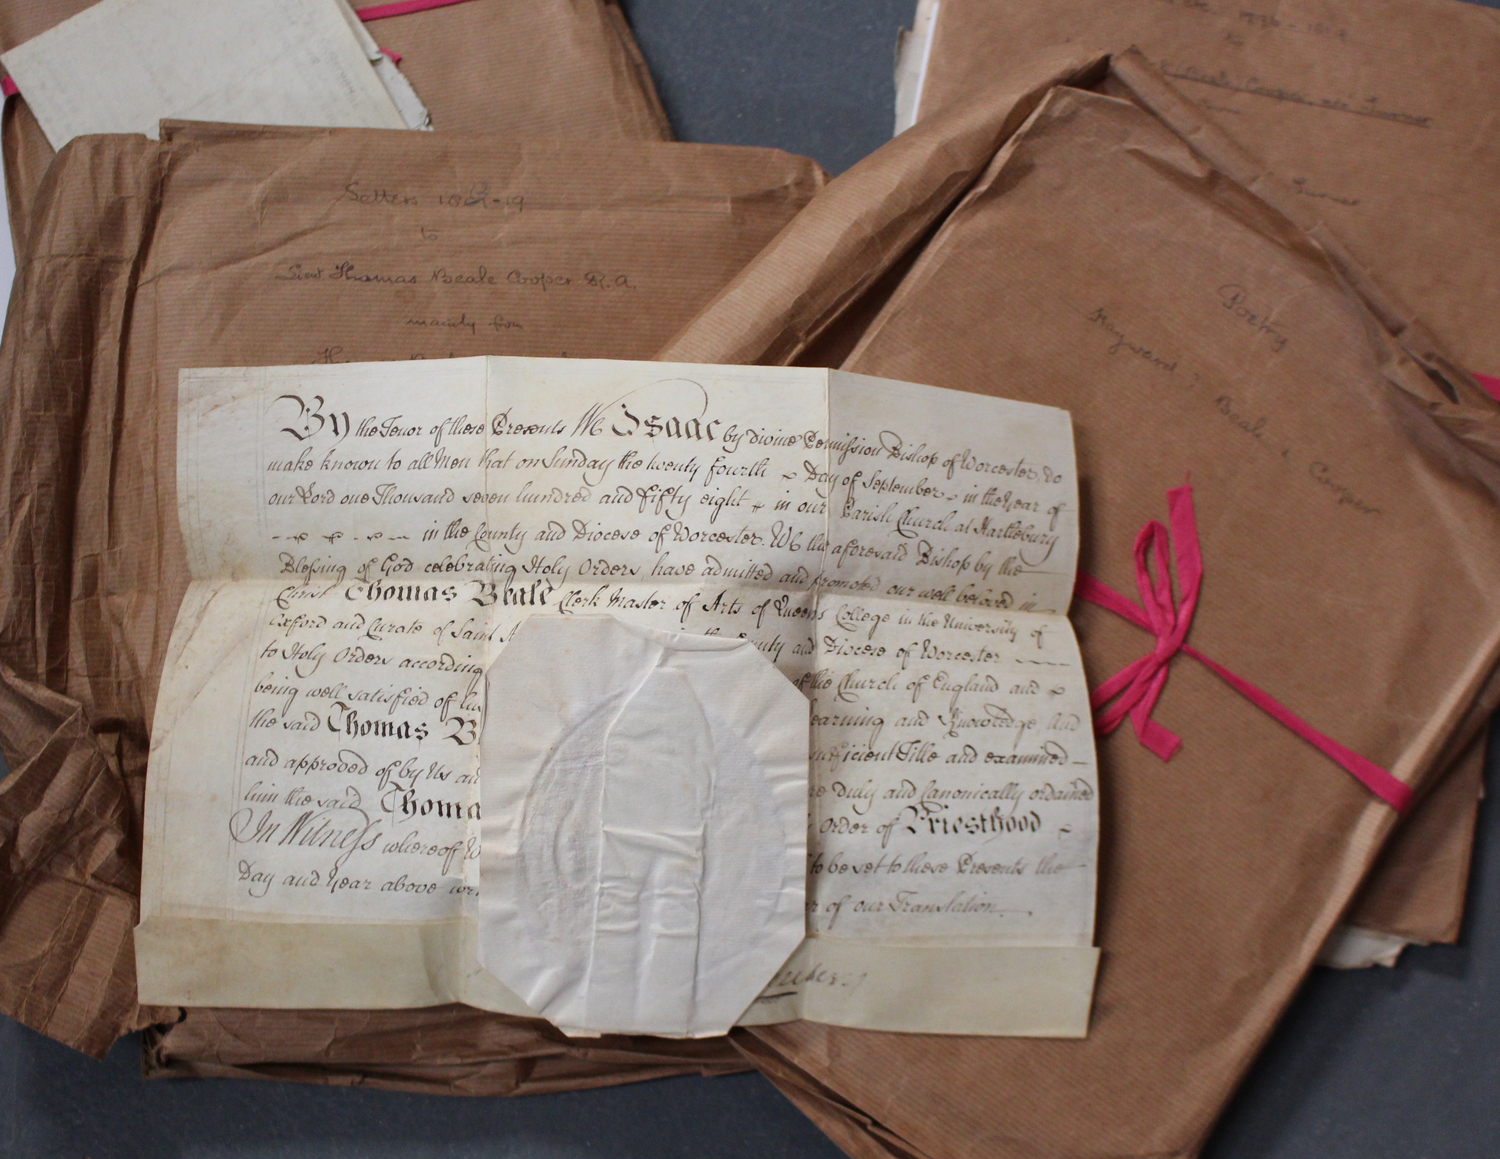 Letters
to
Thomas Beale Cooper
mainly from
Poetry
Hayward : Beale : Cooper
By the Tenor of these Presents We Isaac by divine Permission Bishop of Worcester, do
make known to all Men that on Sunday the twenty fourth Day of September in the Year of
our Lord one Thousand seven hundred and fifty eight in our Parish Church at Hartlebury
in the County and Diocese of Worcester. We the aforesaid Bishop by the
Blessing of God celebrating Holy Orders, have admitted and promoted our well beloved in
Christ Thomas Beale Clerk Master of Arts of Queens College in the University of
Oxford and Curate of Saint and Diocese of Worcester
to Holy Orders according of the Church of England and
being well satisfied of his Learning and Knowledge and
the said Thomas B sufficient Title and examined
and approved of by Us duly and canonically ordained
him the said Thoma Order of Priesthood
In Witness whereof W to be set to these Presents the
Day and Year above of our Translation